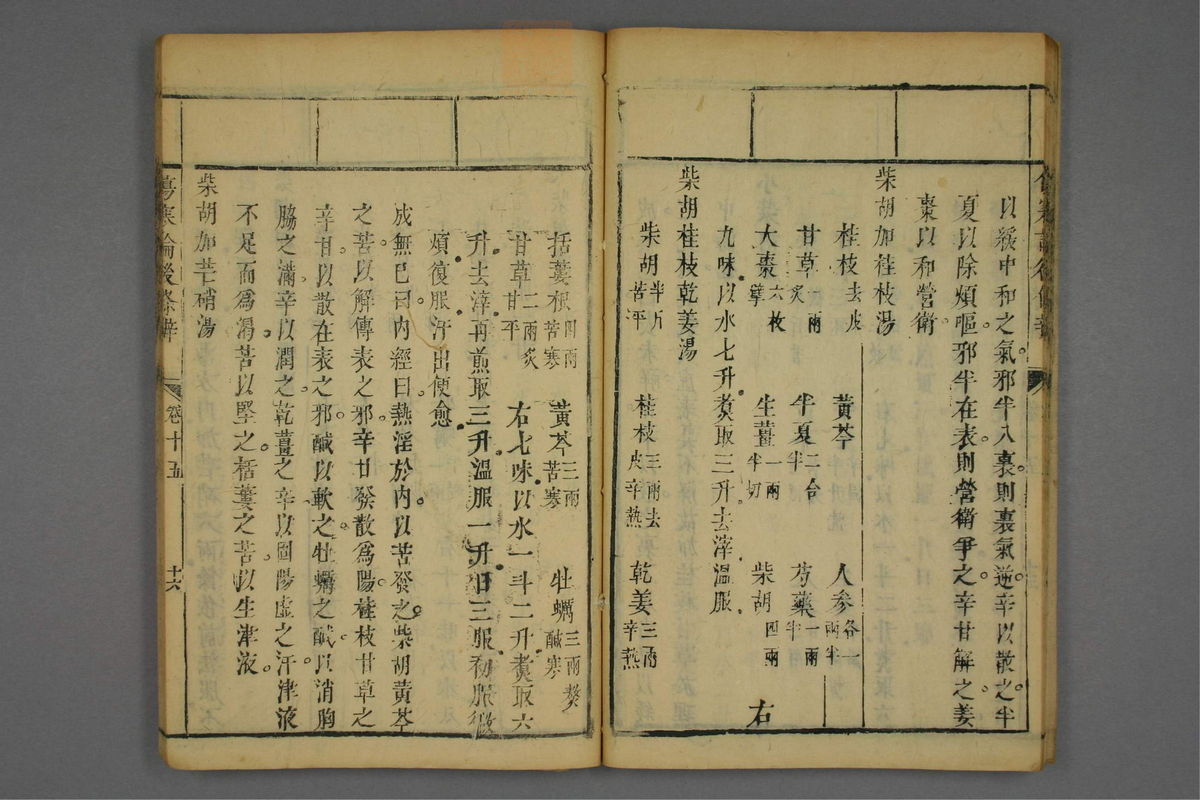 以緩中和之氣邪半入裏則裏氣逆辛以散之半
夏以除煩嘔邪半在表則營衛爭之辛甘解之姜
棗以和營衛
柴胡加桂枝湯
桂枝去皮 黃芩 人參各一兩半
甘草一兩炙 半夏二合半 芍藥一兩半
大棗六枚擘 生薑一兩半切 柴胡四兩 右
九味以水七升煮取三升去滓溫服
柴胡桂枝乾姜湯
柴胡半斤苦平 桂枝三兩去皮辛熱 乾姜三兩辛熱
括蔞根四兩苦寒 黃芩三兩苦寒 牡蠣三兩鹹寒熬
甘草二兩炙甘平 右七味以水一斗二升煮取六
升去滓再煎取三升溫服一升日三服初服微
煩復服汗出便愈
成無已曰內經曰熱淫於內以苦發之柴胡黃芩
之苦以解傳表之邪辛甘發散爲陽桂枝甘草之
辛甘以散在表之邪鹹以軟之牡蠣之鹹以消胸
脇之滿辛以潤之乾薑之辛以固陽虛之汗津液
不足而爲渴苦以堅之栝蔞之苦以生津液
柴胡加芒硝湯
傷寒論後條辨 卷十五 十六